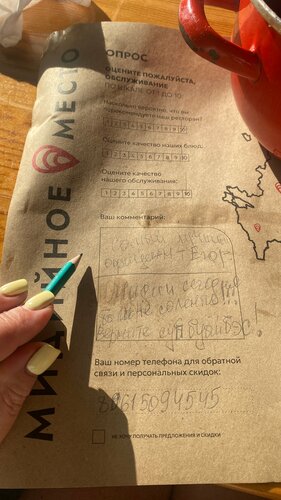 МИДИЙНОЕ МЕСТО
ОПРОС
ОЦЕНИТЕ ПОЖАЛУЙСТА,
ОБСЛУЖИВАНИЕ
ПО ШКАЛЕ ОТ 1 ДО 10
Насколько вероятно, что вы
порекомендуете наш ресторан?
1 2 3 4 5 6 7 8 9 10
Оцените качество наших блюд:
1 2 3 4 5 6 7 8 9 10
Оцените качество
нашего обслуживания:
1 2 3 4 5 6 7 8 9 10
Ваш комментарий:
Самый лучший
официант Егор
Мидии сегодня
Верните суп буйабес!
Ваш номер телефона для обратной
связи и персональных скидок:
89615094545
НЕ ХОЧУ ПОЛУЧАТЬ ПРЕДЛОЖЕНИЯ И СКИДКИ